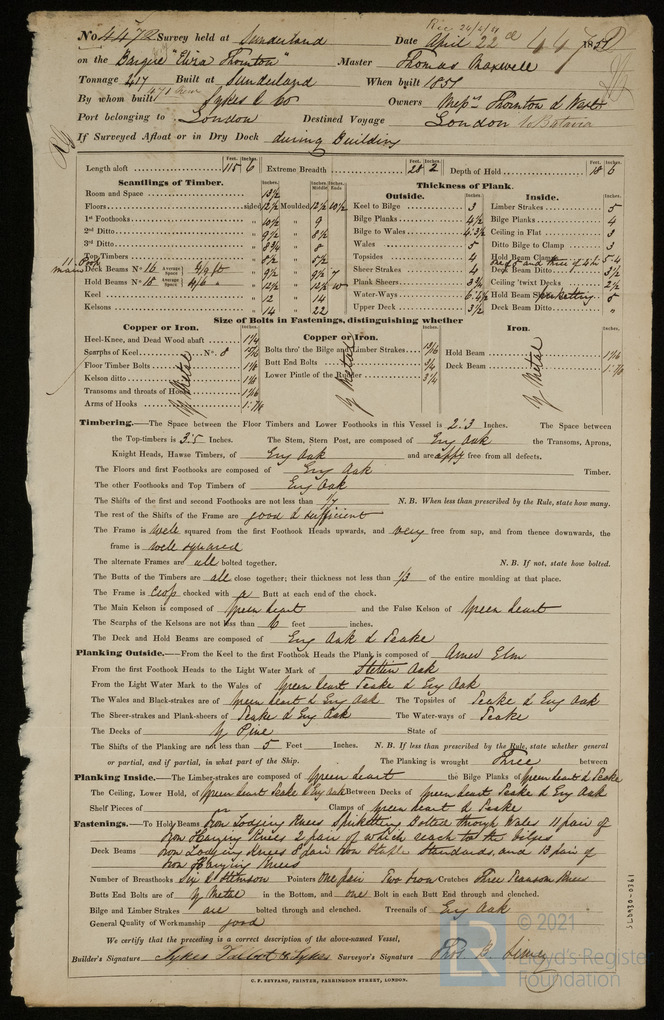 Rec 24/4/51
No 4472 Survey held at Sunderland Date April 22d 1851
on the Barque "Eliza Thornton" Master Thomas Maxwell
Tonnage 417 Built at Sunderland When built 1851
By whom built Sykes & Co Owners Messrs Thornton & West
Port belonging to London Destined Voyage London to Batavia
If Surveyed Afloat or in Dry Dock during Building
Length aloft 115 6 Extreme Breadth 28 2 Depth of Hold 18 6
Scantlings of Timber. Thickness of Plank.
Outside. Inside.
Room and Space
Floors sided 12½ Moulded 12½ 10½ Keel to Bilge 3 Limber Strakes 5
1st Foothooks " 10½ " 9 Bilge Planks 4½ Bilge Planks 4
2nd Ditto " 9½ " 8½ Bilge to Wales Ceiling in Flat 3
3rd Ditto " 8¾ " 8 Wales 5 Ditto Bilge to Clamp 3
Top Timbers " 8½ " 5½ Topsides 4 Hold Beam Clamp
Deck Beams No 16 Average Space " 9½ " 9½ 7 Sheer Strakes 4 Deck Beam Ditto 3½
Hold Beams No 18 Average Space " 12½ " 12½ 10 Plank Sheers 3¾ Ceiling 'twixt Decks 2½
Keel " 12 " 14 Water-Ways Hold Beam Spirketting 5
Kelsons " 14 " 22 Upper Deck 3½ Deck Beam Ditto "
Size of Bolts in Fastenings, distinguishing whether
Copper or Iron. Copper or Iron. Iron.
Heel-Knee, and Dead Wood abaft
Scarphs of Keel No. 8 Bolts thro' the Bilge and Limber Strakes Hold Beam
Floor Timber Bolts Butt End Bolts Deck Beam
Kelson ditto Lower Pintle of the Rudder
Transoms and throats of Hooks
Arms of Hooks
Y Metal Y Metal Y Metal
Timbering.—The Space between the Floor Timbers and Lower Foothooks in this Vessel is 2.3 Inches. The Space between
the Top-timbers is 3.5 Inches. The Stem, Stern Post, are composed of Eng Oak the Transoms, Aprons,
Knight Heads, Hawse Timbers, of Eng Oak and are free from all defects.
The Floors and first Foothooks are composed of Eng Oak Timber.
The other Foothooks and Top Timbers of Eng Oak
The Shifts of the first and second Foothooks are not less than 1/7 N. B. When less than prescribed by the Rule, state how many.
The rest of the Shifts of the Frame are good & sufficient
The Frame is well squared from the first Foothook Heads upwards, and very free from sap, and from thence downwards, the
frame is well squared
The alternate Frames are all bolted together. N. B. If not, state how bolted.
The Butts of the Timbers are all close together; their thickness not less than 1/3 of the entire moulding at that place.
The Frame is crop chocked with a Butt at each end of the chock.
The Main Kelson is composed of Green heart and the False Kelson of Green heart
The Scarphs of the Kelsons are not less than 6 feet inches.
The Deck and Hold Beams are composed of Eng Oak & Teake
Planking Outside.—From the Keel to the first Foothook Heads the Plank is composed of Amer Elm
From the first Foothook Heads to the Light Water Mark of Stettin Oak
From the Light Water Mark to the Wales of Green heart Teake & Eng Oak
The Wales and Black-strakes are of Green heart & Eng Oak The Topsides of Teake & Eng Oak
The Sheer-strakes and Plank-sheers of Teake & Eng Oak The Water-ways of Teake
The Decks of Y Pine State of
The Shifts of the Planking are not less than 5 Feet Inches. N. B. If less than prescribed by the Rule, state whether general
or partial, and if partial, in what part of the Ship. The Planking is wrought Three between
Planking Inside.—The Limber-strakes are composed of Green heart the Bilge Planks of Green heart & Teake
The Ceiling, Lower Hold, of Green heart Teake & Eng Oak Between Decks of Green heart Teake & Eng Oak
Shelf Pieces of Clamps of Green heart & Teake
Fastenings.—To Hold Beams Iron Lodging Knees Spirketting Bolted through Wales 11 pair of
Iron Hanging Knees 2 pair of which reach to the bilges
Deck Beams Iron Lodging Knees 8 pair Iron Staple Standards, and 13 pair of
Iron Hanging Knees
Number of Breasthooks Six & Stemson Pointers One pair Two Iron Crutches Three Transom Knees
Butts End Bolts are of Y Metal in the Bottom, and one Bolt in each Butt End through and clenched.
Bilge and Limber Strakes are bolted through and clenched. Treenails of Eng Oak
General Quality of Workmanship good
We certify that the preceding is a correct description of the above-named Vessel,
Builder's Signature Sykes Talbot & Sykes Surveyor's Signature Thos. B. Simey
G. F. SEYFANG, PRINTER, FARRINGDON STREET, LONDON.
© 2021
LR Lloyd's Register
Foundation